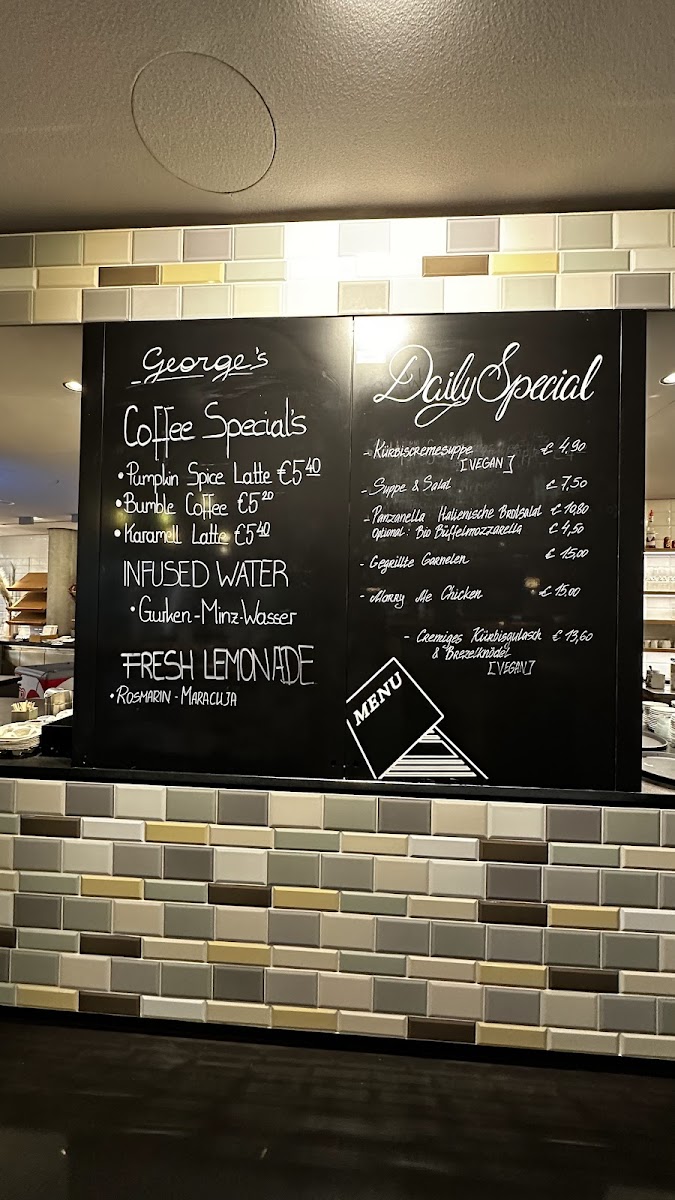 George's
Coffee Special's
• Pumpkin Spice Latte €5 40
• Bumble Coffee €5 20
• Karamell Latte €5 40
INFUSED WATER
• Gurken-Minz-Wasser
FRESH LEMONADE
• ROSMARIN - MARACUJA
Daily Special
- Kürbiscremesuppe € 4,90
[VEGAN]
- Suppe & Salat € 7,50
- Panzanella Italienische Brotsalat € 10,80
optional: Bio Büffelmozzarella € 4,50
- Gegrillte Garnelen € 15,00
- Morry Ale Chicken € 15,00
- Cremiges Kürbisgulasch € 13,60
& Brezelknödel
[VEGAN]
MENU